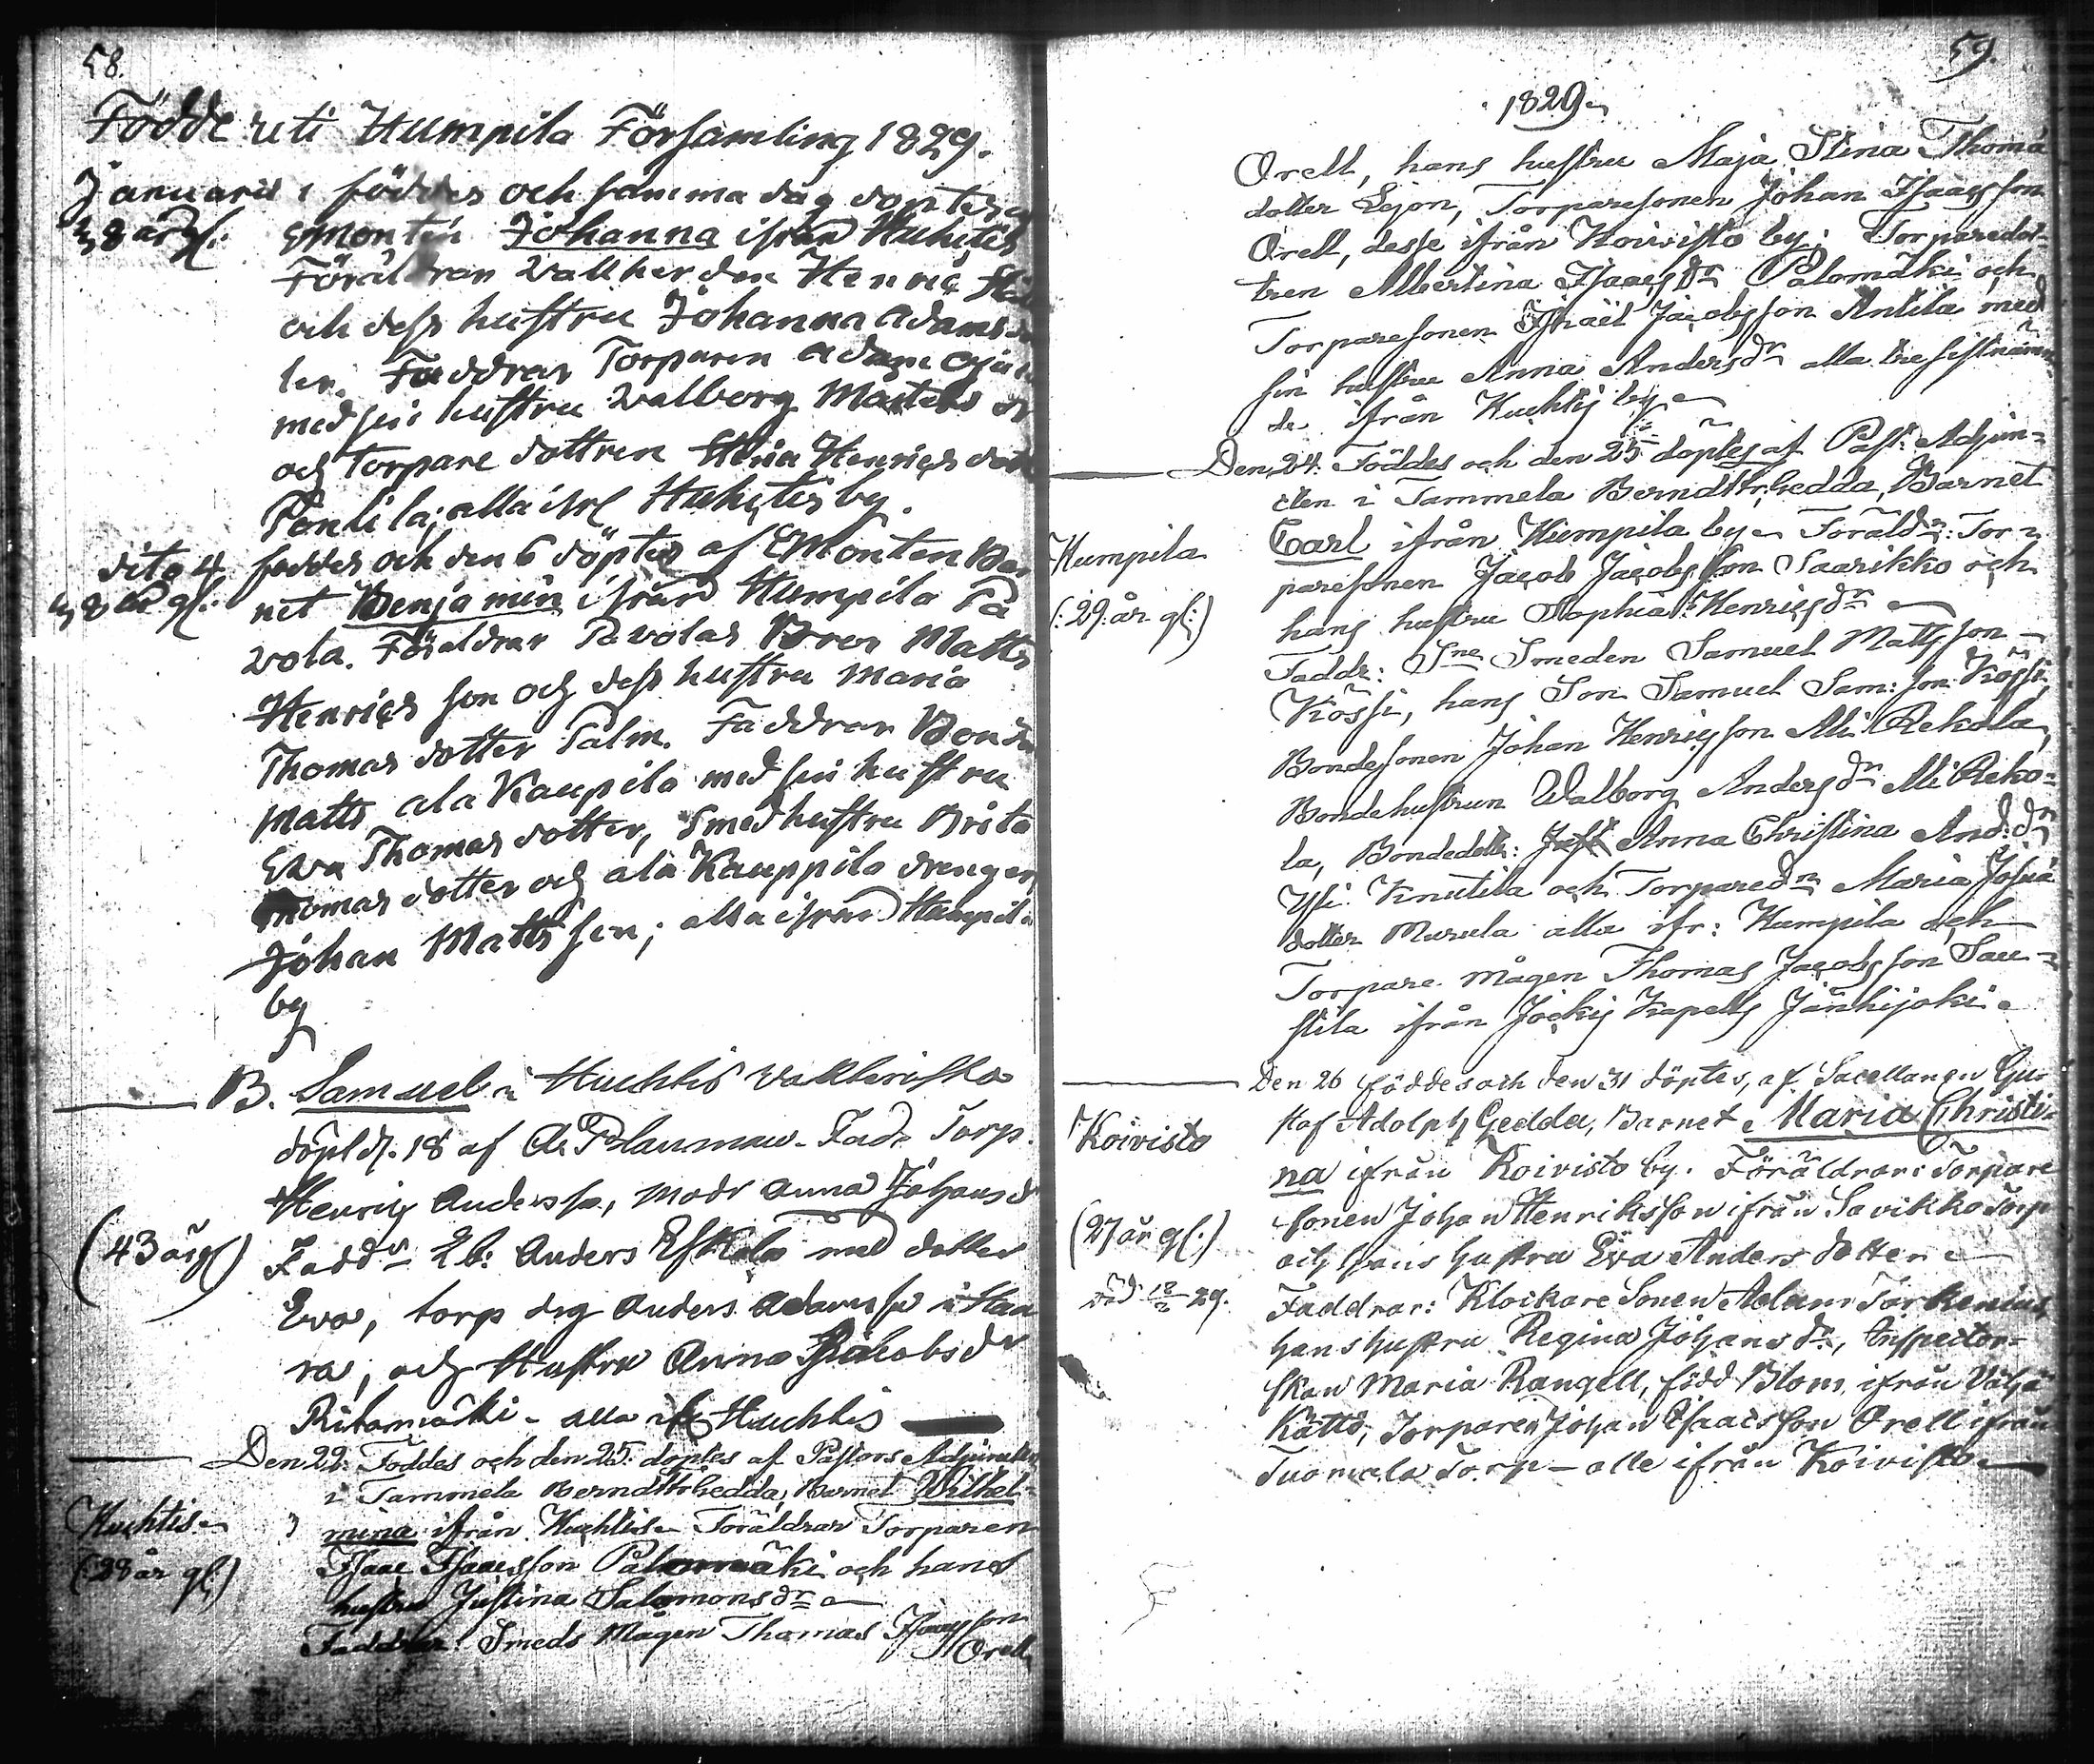 58.
Födde uti Humpila Församling 1829.
Januarii 1 föddes och samma dag döptes af
38 år gl: EMonten Johanna ifrån Huhtis
Föräldrar Vallherden Henric
och dess hustru Johanna Adams
ter. Faddrar Torparen Adam
med sin hustru Walborg Mårtens
och Torpare dottren Stina Henrics dott
Pentila; alla ifrå Huhtis by.
dito 4 föddes och den 6 döptes af EMonten Bar
38 år gl: net Benjamin ifrån Humpila Pa
vola. Föräldrar Pavolas Bror Matts
Henrics son och dess hustru Maria
Thomas dotter Palm. Faddrar Bonden
Matts ala Kaupila med sin hustru
Eva Thomas dotter, Smedhustru Brita
Thomas dotter och ala Kauppila drengen
Johan Matts son; alla ifrån Humpila
by
B. Samuel i Huchtis
döpt d. 18 af A. Polaumau. Fadr Torp.
Henric Anderss., Modr Anna Johansd
(43 år gl) Faddr Anders Eskola med dotter
Eva, torp drg Anders Adamss i
ra, och Hustru Anna Jakobsdr
Ritamäki - alla ifr Huchtis
Den 22. Föddes och den 25. döptes af Pastors Adjuncten
i Tammela Berndt Gedda, Barnet Wilhel-
Huchtis mina ifrån Huchtis Föräldrar Torparen
(:28 år gl:) Isaac Isaacsson Palomäki och hans
hustru Justina Salomonsdr
Faddrar: Smeds Mågen Thomas Isaacsson
Orell
59.
1829
Orell, hans hustru Maja Stina Thomä
dotter Lejon, Torparesonen Johan Isaacsson
Orell, desse ifrån Koivisto by; Torparedot-
tren Albertina Isaacsdr Palomäki och
Torparesonen Israel Jacobsson Antila med
sin hustru Anna Andersdr alla tre sistnämn
de ifrån Huchtis by
Den 24. Föddes och den 25 döptes af Past: Adjun-
cten i Tammela Berndt Gedda, Barnet
Humpila Carl ifrån Humpila by Föräldr: Tor-
(:29: år gl:) paresonen Jacob Jacobsson Saarikko och
hans hustru Sophia Henricsdr
Faddr: Sne Smeden Samuel Mattsson
Kössi, hans Son Samuel Sam: son Kössi
Bondesonen Johan Henricsson Ali Rekola,
Bondehustrun Walborg Andersdr Ali Reko-
la, Bondedottr: Anna Christina And:dr
Yli Knutila och Torparedr Maria Josua
dotter Murula alla ifr: Humpila och
Torpare mågen Thomas Jacobsson Sau-
stila ifrån Jockis Kapells Jänhijoki
Den 26 föddes och den 31 döptes, af Sacellanen Gu-
staf Adolph Gedda, Barnet Maria Christi-
Koivisto na ifrån Koivisto by. Föräldrar: Torpare
(27 år gl.) sonen Johan Henriksson ifrån Savikko Torp
och hans hustru Eva Anders dotter
död 18/2 29. Faddrar: Klockare Sonen Adam Torkenius
hans hustru Regina Johansdr, Inspector-
skan Maria Rangell, född Blom, ifrån Vähä
Kättö, Torparen Johan Isaacsson Orell ifrån
Tuomala Torp - alle ifrån Koivisto